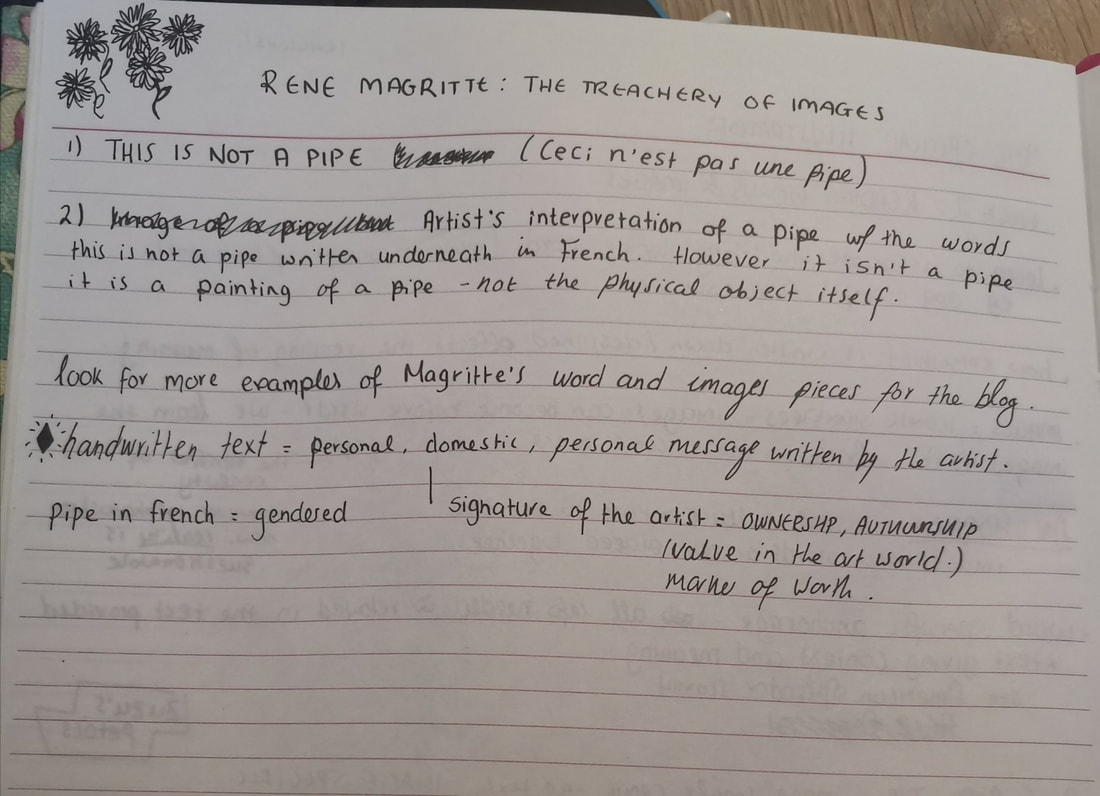 RENE MAGRITTE: THE TREACHERY OF IMAGES
1) THIS IS NOT A PIPE (Ceci n'est pas une pipe)
2) Artist's interpretation of a pipe w/ the words
this is not a pipe written underneath in French. However it isn't a pipe
it is a painting of a pipe - not the physical object itself.
look for more examples of Magritte's word and images pieces for the blog.
handwritten text = personal, domestic, personal message written by the artist.
pipe in french = gendered
signature of the artist = OWNERSHP, AUTHUNSHIP
(value in the art world.)
marke of worth.